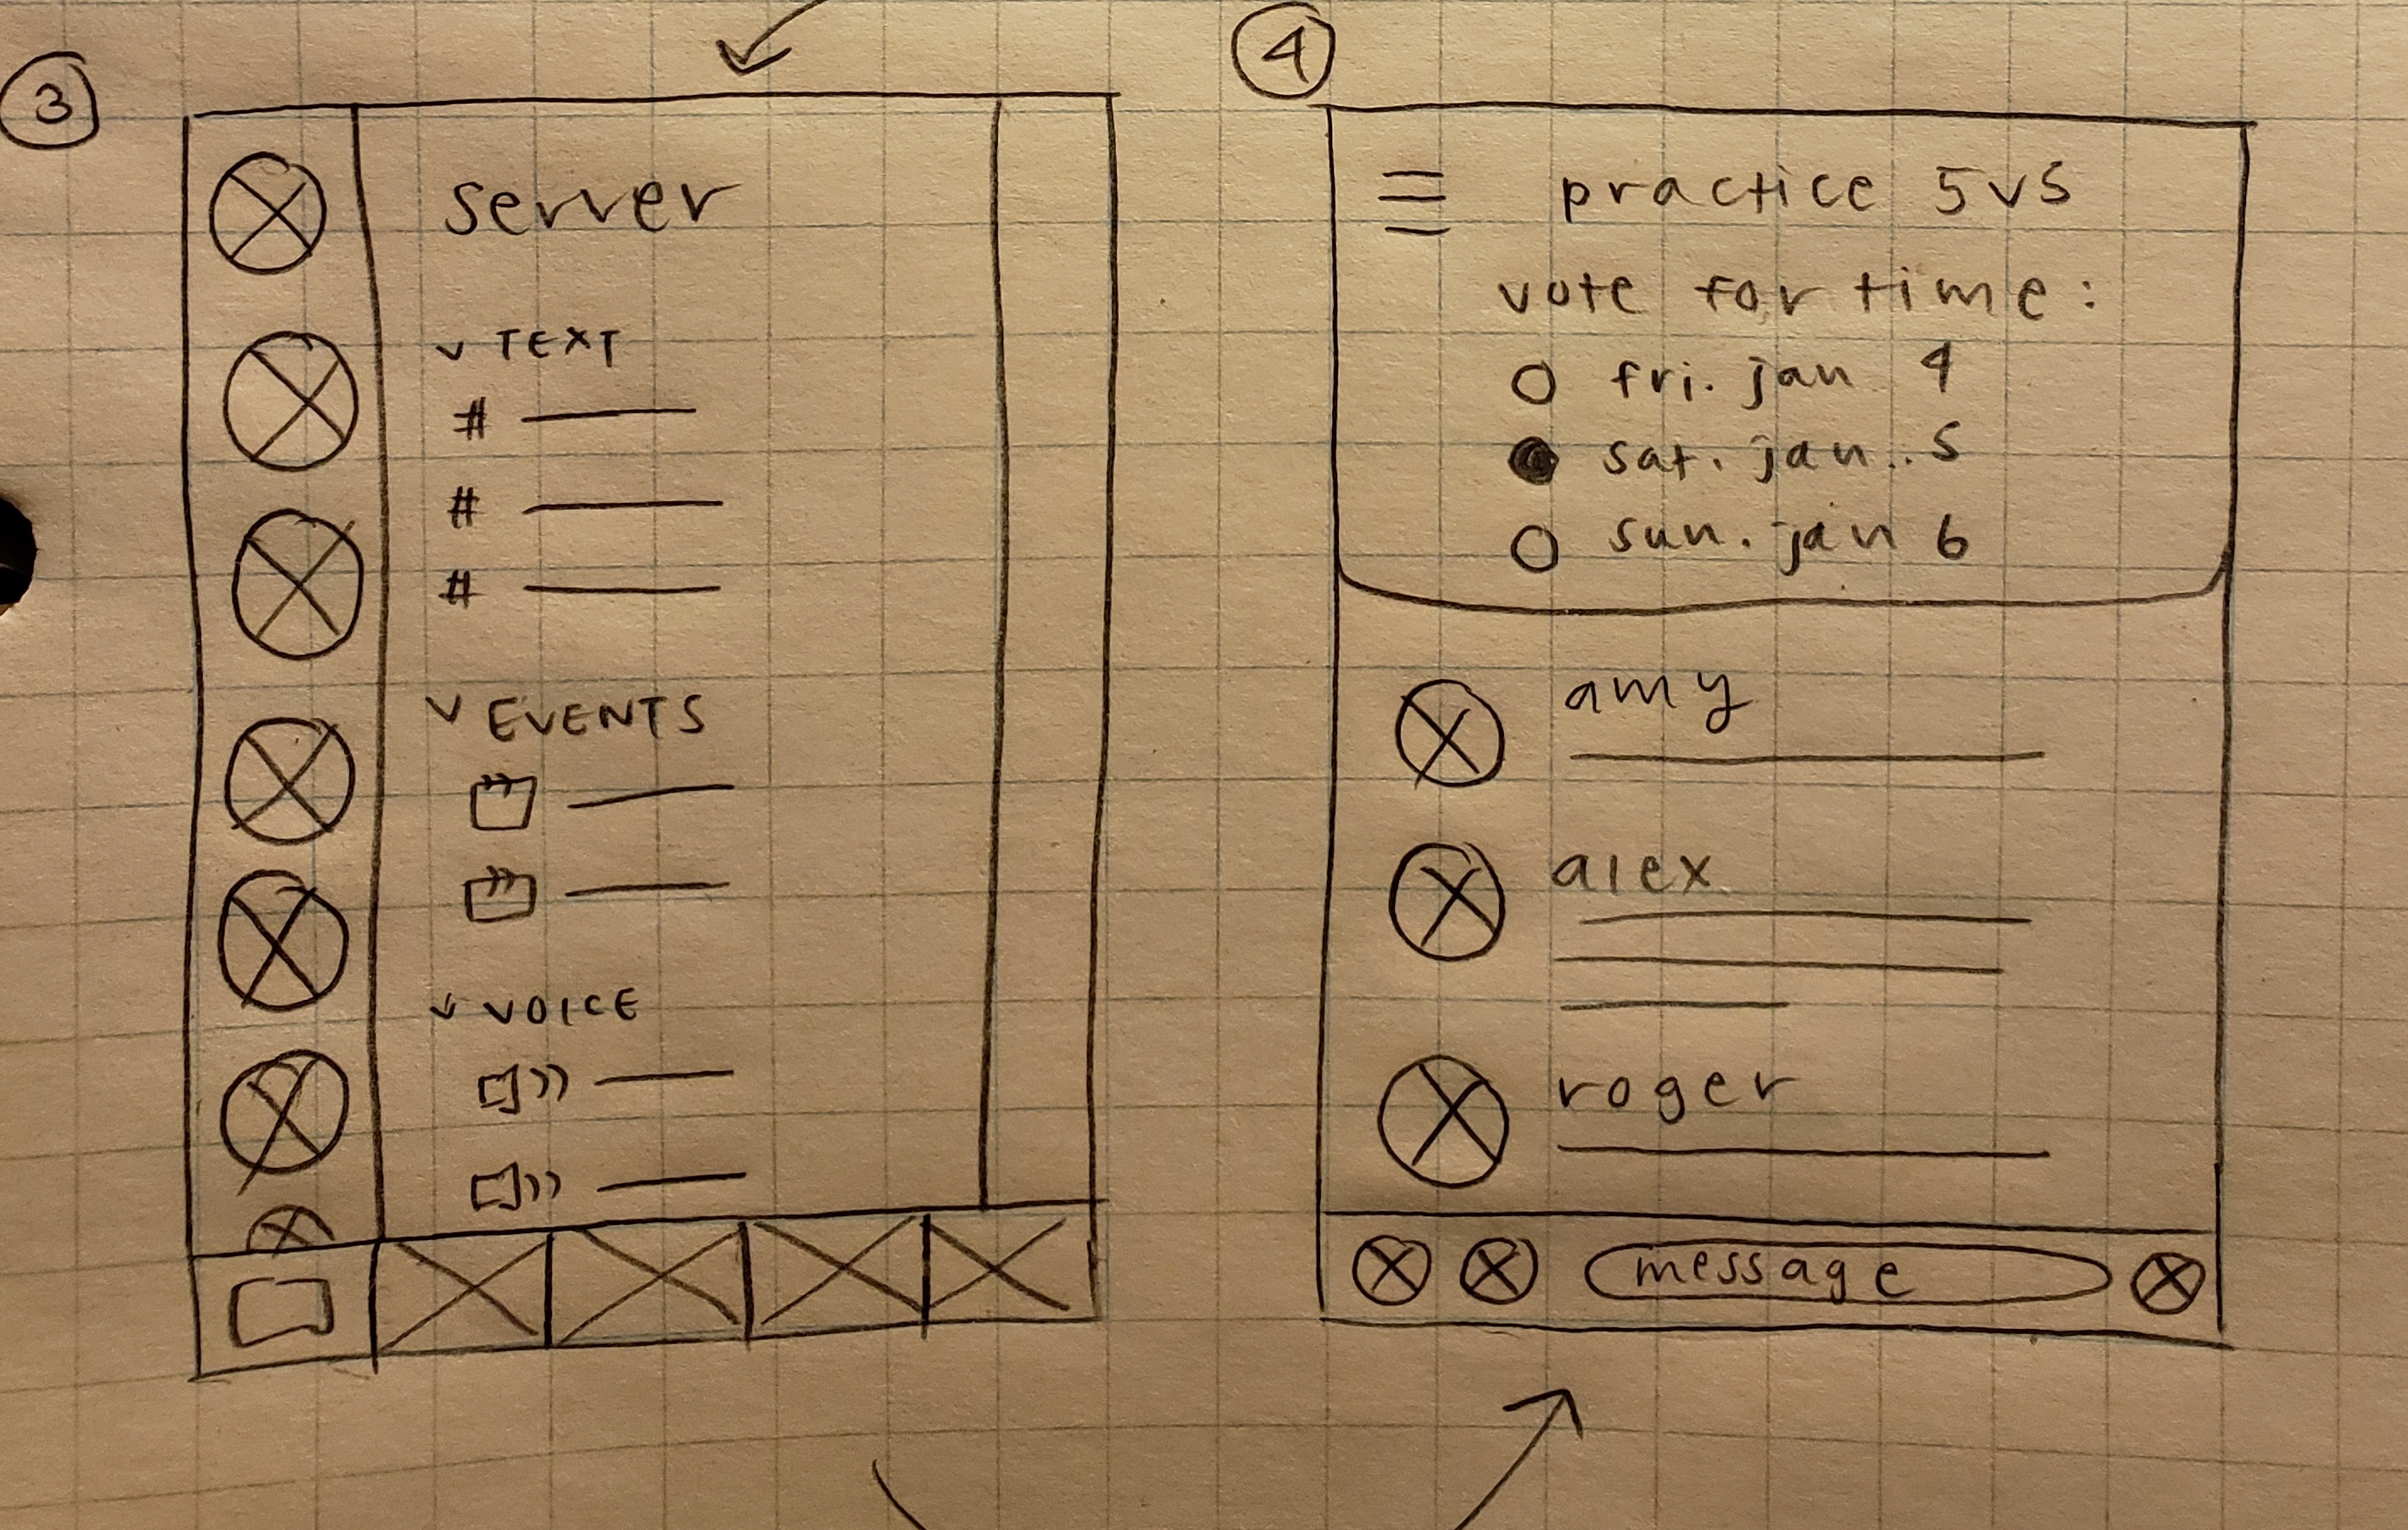 3
server
TEXT
#
#
#
EVENTS
VOICE
4
practice 5v5
vote for time:
fri. jan 4
sat. jan. 5
sun. jan 6
amy
alex
roger
message